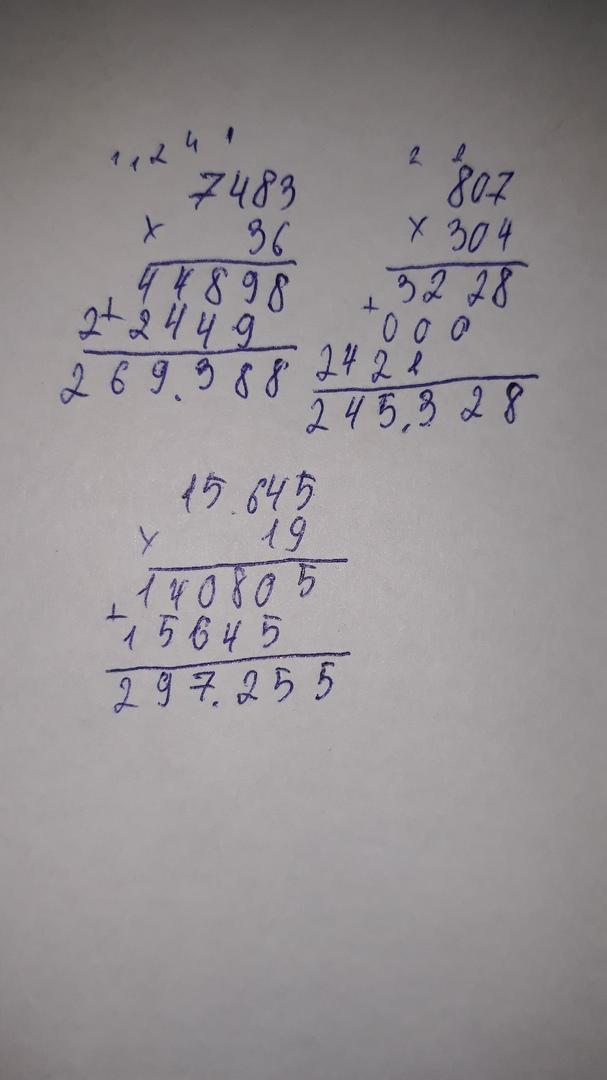 1 1 2 4 1
7483
x 36
44898
+
22449
269.388
2 2
807
x 304
3228
+
000
2421
245.328
15.645
x 19
140805
+
15645
297.255